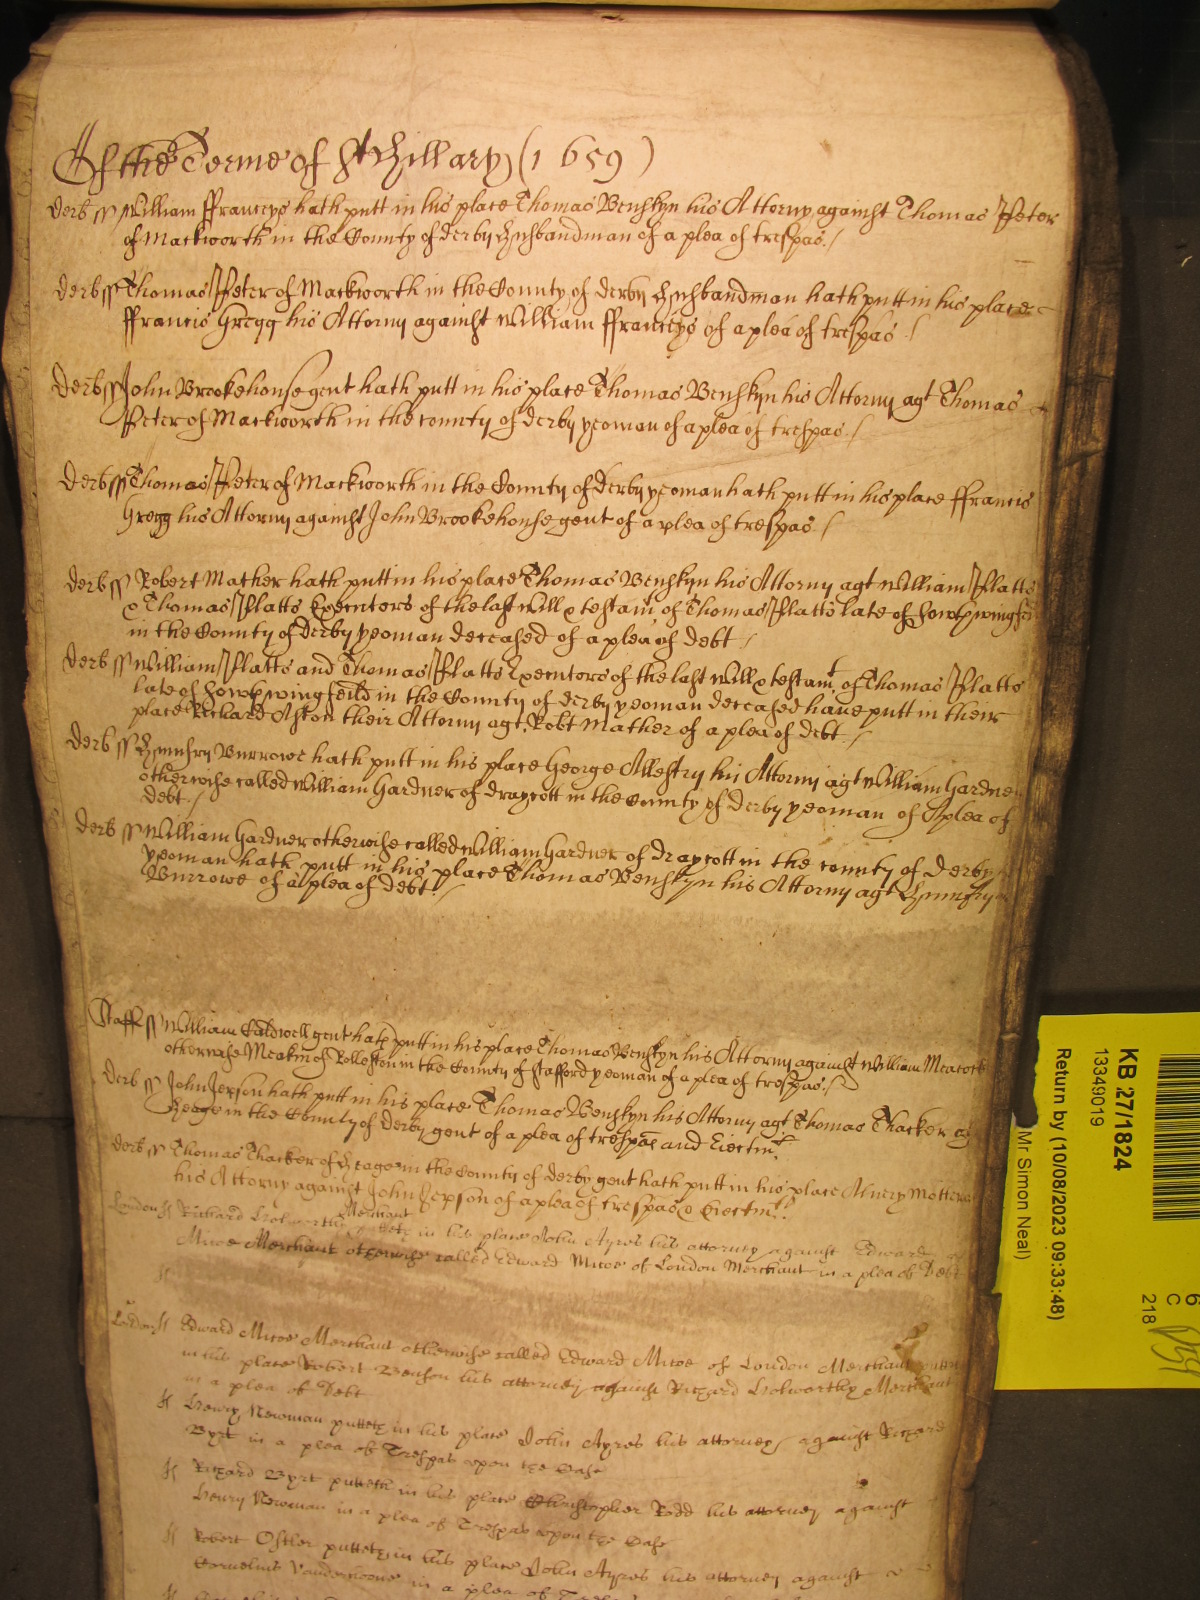 Of the Terme of St Hillary (1659)
Derb ss William ffranceys hath putt in his place Thomas Benskyn his Attorny against Thomas Peter
of Mackworth in the County of Derby Husbandman of a plea of trespas./
Derb ss Thomas Peter of Mackworth in the County of Derby Husbandman hath putt in his place
ffrancis Gregg his Attorny against William ffranceys of a plea of trespas /
Derb ss John Brookehouse gent hath putt in his place Thomas Benskyn his Attorny agt Thomas
Peter of Mackworth in the county of Derby yeoman of a plea of trespas./
Derb ss Thomas Peter of Mackworth in the County of Derby yeoman hath putt in his place ffrancis
Gregg his Attorny against John Brookehouse gent of a plea of trespas /
Derb ss Robert Mather hath putt in his place Thomas Benskyn his Attorny agt William Flatts
& Thomas Flatts Executors of the last Will & testam of Thomas Flatts late of
in the County of Derby yeoman deceased of a plea of debt /
Derb ss William Flatts and Thomas Flatts Executors of the last Will & testamt of Thomas Flatts
late of Sowthwingfeild in the County of Derby yeoman deceased have putt in their
place Richard Aston their Attorny agt Robt Mather of a plea of debt /
Derb ss Humfry Burrowe hath putt in his place George Allestry his Attorny agt William Gardner
otherwise called William Gardner of Draycott in the County of Derby yeoman of A plea of
debt /
Derb ss William Gardner otherwise called William Gardner of Draycott in the county of Derby
yeoman hath putt in his place Thomas Benskyn his Attorny agt Humfry
Burrowe of a plea of debt /
Staff ss William Caldwell gent hath putt in his place Thomas Benskyn his Attorny against William Meacock
otherwise Meakin of Rolleston in the County of Stafford yeoman of a plea of trespas /
Derb ss John Jerson hath putt in his place Thomas Benskyn his Attorny agt Thomas Thacker
Heage in the County of Derby gent of a plea of trespas and Eiectmt
Derb ss Thomas Thacker of Heage in the County of Derby gent hath putt in his place
his Attorny against John Jerson of a plea of trespas & Eiectmt
London ss Richard Holworthy Merchant putteth in his place John Ayres his attorney against Edward
Micoe Merchant otherwise called Edward Micoe of London Merchant in a plea of Debt
London ss Edward Micoe Merchant otherwise called Edward Micoe of London Merchant putteth
in his place Robert Benson his attorney against Richard Holworthy Merchant
in a plea of Debt
ss Henry Newman putteth in his place John Ayres his attorney against Richard
Byrt in a plea of Trespas upon the Case
ss Richard Byrt putteth in his place Christopher Rodd his attorney against
Henry Newman in a plea of Trespas upon the Case
ss Robert Ostler putteth in his place John Ayres his attorney against
Cornelius in a plea of
KB 27/1824
13349019
Return by (10/08/2023 09:33:48)
Mr Simon Neal)
6
C
218